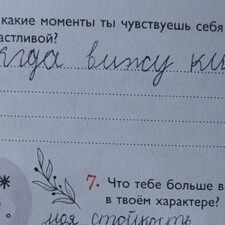 какие моменты ты чувствуешь себя
астливой?
вижу
7. Что тебе больше в
в твоём характере?
моя стойкость